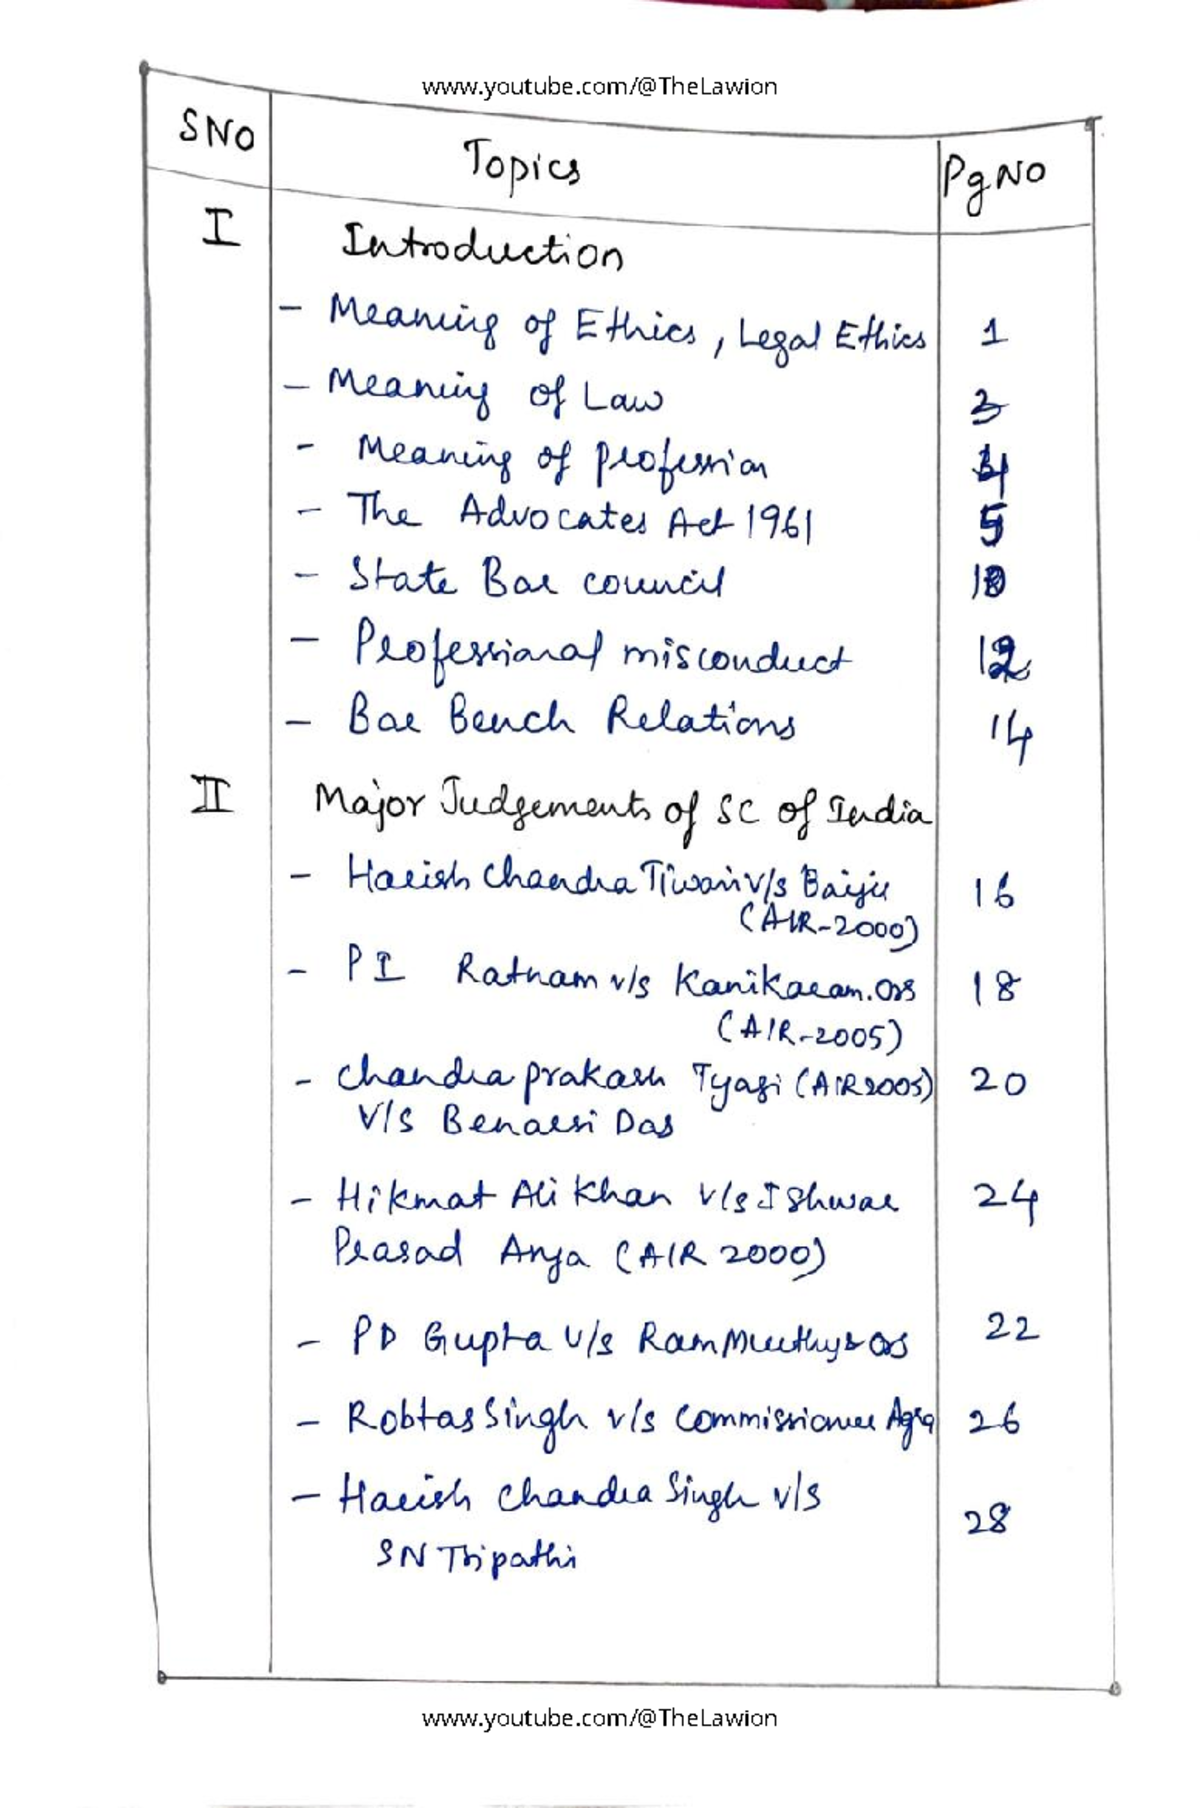 www.youtube.com/@TheLawion
SNO Topics PgNO
I Introduction
- Meaning of Ethics, Legal Ethics 1
- Meaning of Law 3
- Meaning of profession 4
- The Advocates Act 1961 5
- State Bar council 10
- Professional misconduct 12
- Bar Bench Relations 14
II Major Judgements of SC of India
- Harish Chandra Tiwari v/s Baiju 16
(AIR-2000)
- PI Ratnam v/s Kanikaram. Ors 18
(AIR-2005)
- Chandra prakash Tyagi (AIR 2005) 20
V/S Benarsi Das
- Hikmat Ali Khan v/s Ishwar 24
Prasad Arya (AIR 2000)
- PD Gupta v/s Ram Murthy & Ors 22
- Robtas Singh v/s Commissioner Agra 26
- Harish Chandra Singh v/s
28
SN Tripathi
www.youtube.com/@TheLawion